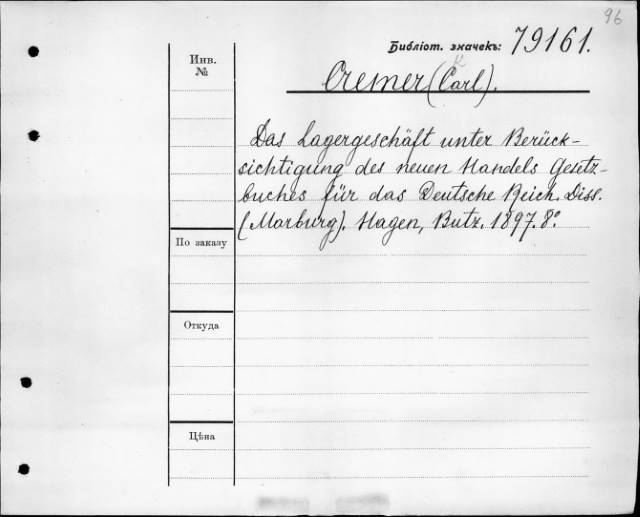 96
Библіот. значекъ: 79161.
Инв.
№
Cremer (Carl).
K
Das Lagergeschäft unter Berück-
sichtigung des neuen Handels Gesetz-
buches für das Deutsche Reich. Diss.
(Marburg). Hagen, Butz. 1897. 8°.
По заказу
Откуда
Цѣна